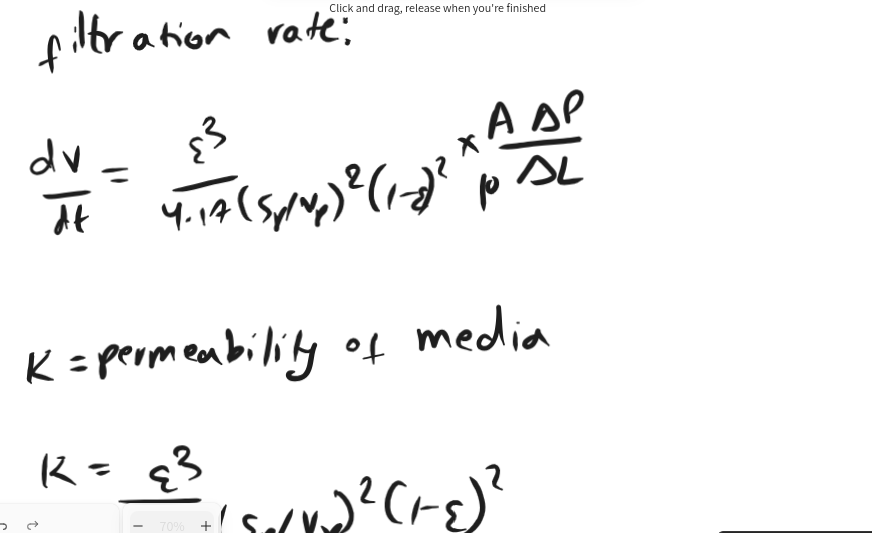 Click and drag, release when you're finished
filtration rate:
dv/dt = ε³ / 4.17(Sp/Vp)²(1-ε)² × A ΔP / μ ΔL
K = permeability of media
K = ε³ / (Sp/Vp)²(1-ε)²
− 70% +